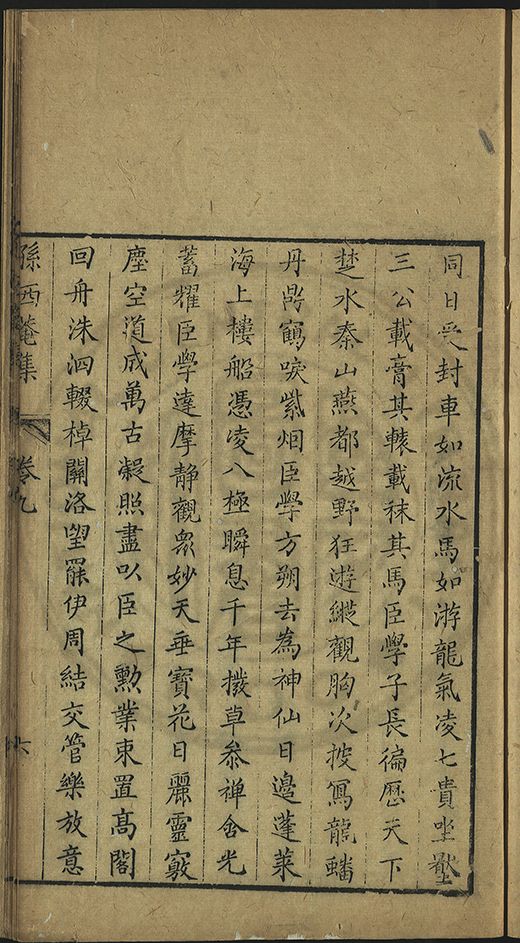 同日受封車如流水馬如游龍氣凌七貴坐壓
三公載膏其轅載秣其馬臣學子長徧歷天下
楚水秦山燕都越野狂遊縱觀胸次披寫龍蟠
丹鼎鶴唳紫烟臣學方朔去為神仙日邊蓬萊
海上樓船憑凌八極瞬息千年撥草叅禅含光
蓄耀臣學達摩靜觀衆妙天垂寶花日麗靈竅
塵空道成萬古凝照盡以臣之勲業束置高閣
回舟洙泗輟棹關洛望罷伊周結交管樂放意
孫西菴集 卷九 六